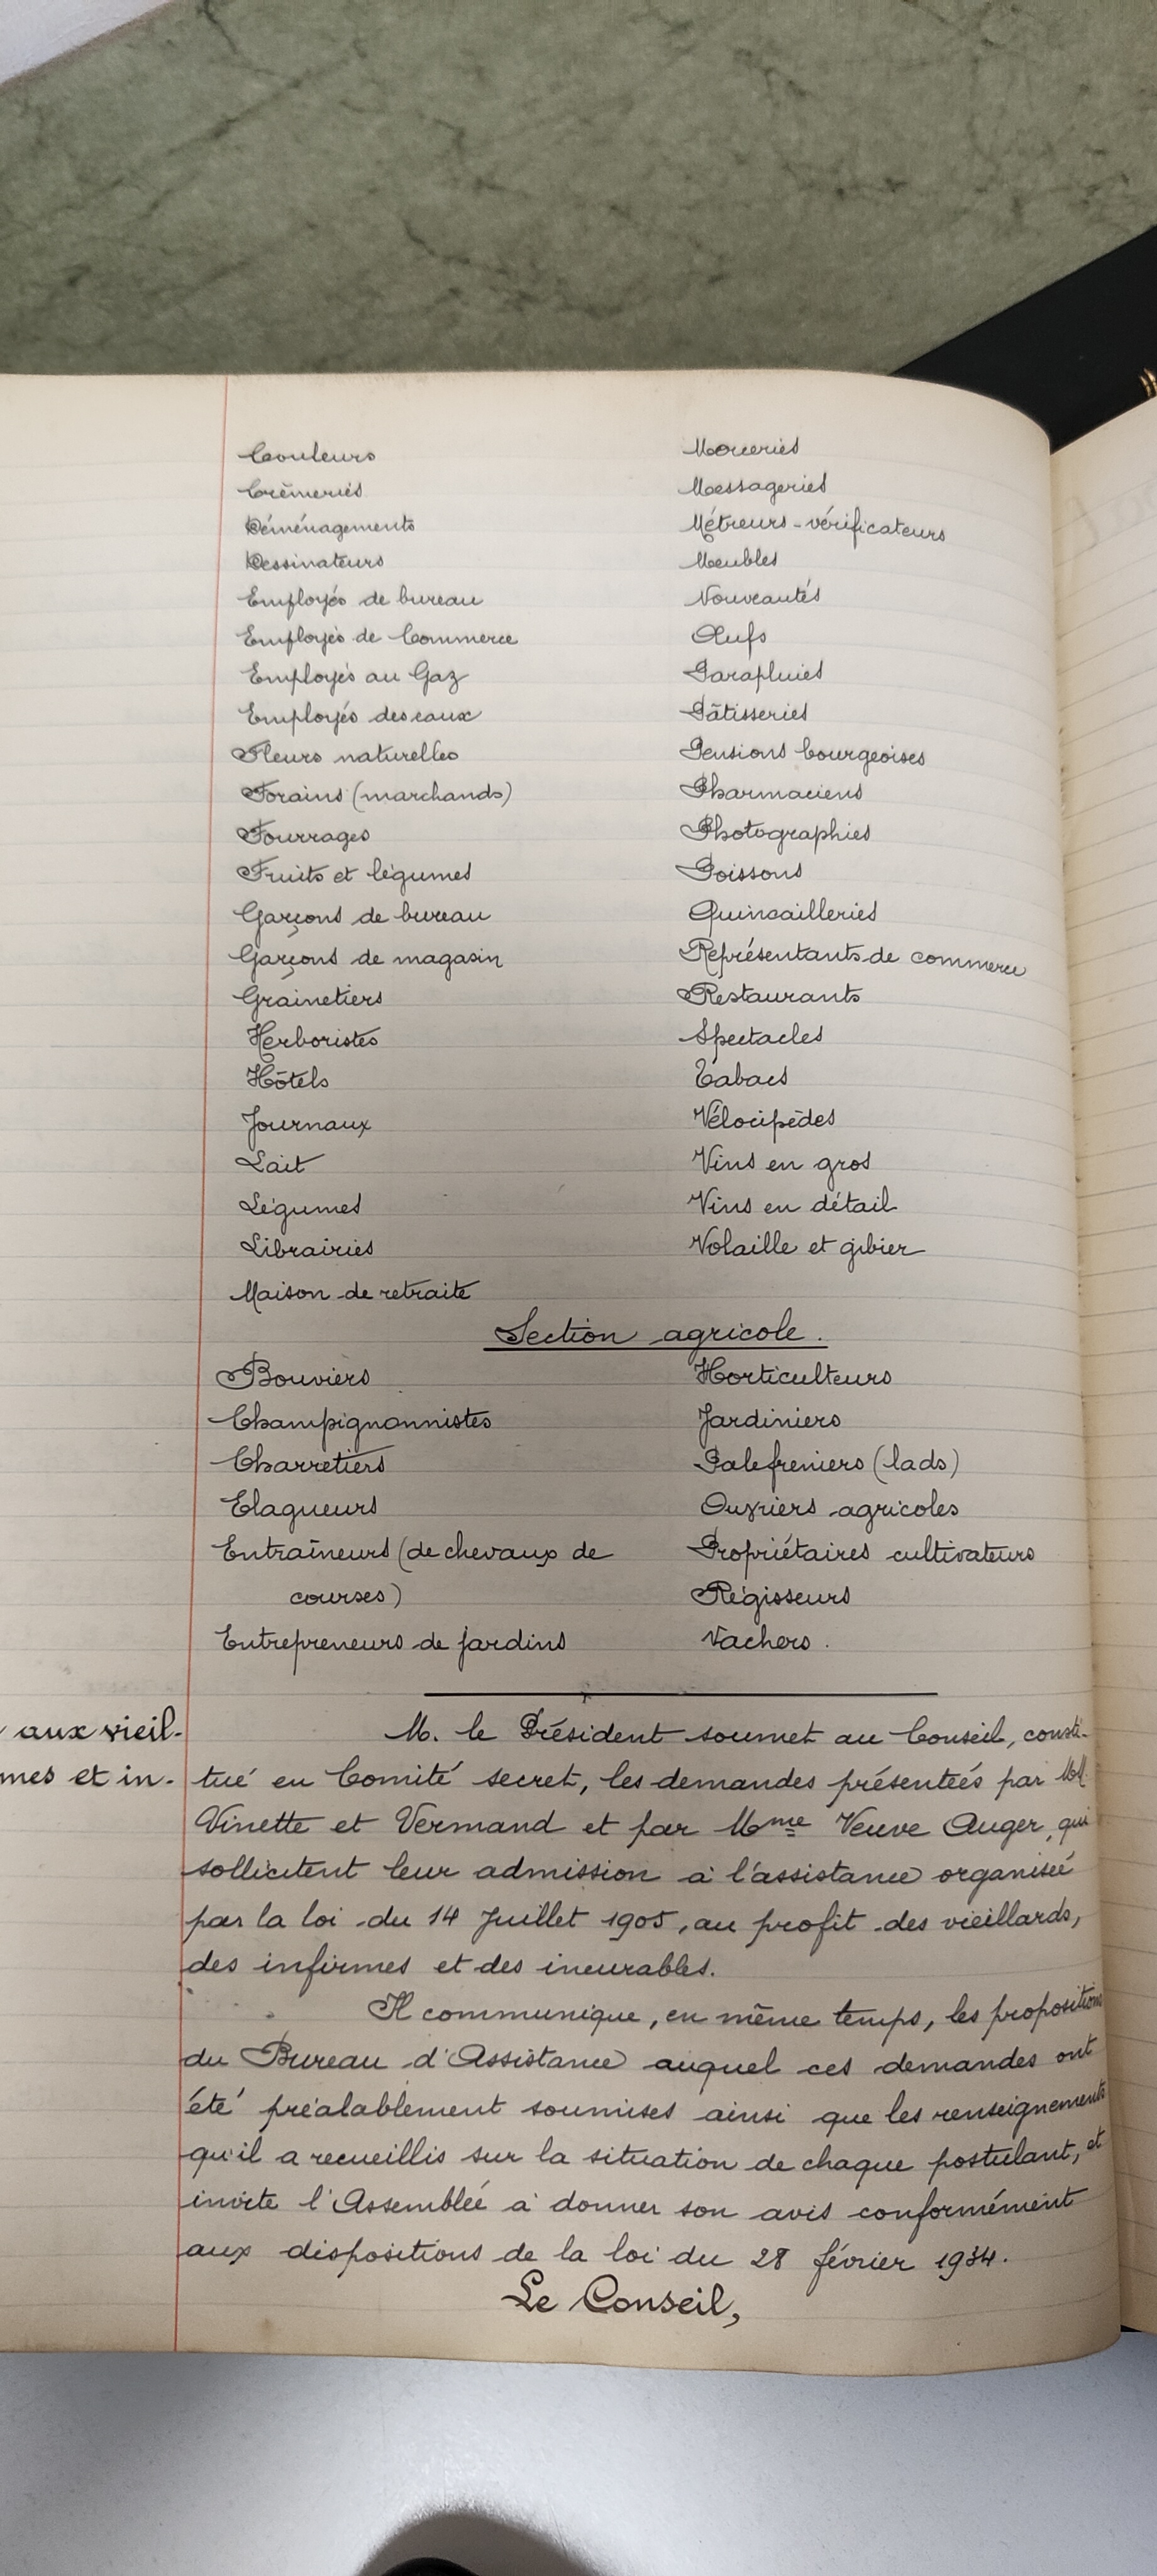 Couleurs
Crèmeries
Déménagements
Dessinateurs
Employés de bureau
Employés de Commerce
Employés au Gaz
Employés des eaux
Fleurs naturelles
Forains (marchands)
Fourrages
Fruits et légumes
Garçons de bureau
Garçons de magasin
Grainetiers
Herboristes
Hôtels
Journaux
Lait
Légumes
Librairies
Maison de retraite
Merceries
Messageries
Métreurs-vérificateurs
Meubles
Nouveautés
Œufs
Parapluies
Pâtisseries
Pensions bourgeoises
Pharmaciens
Photographies
Poissons
Quincailleries
Représentants de commerce
Restaurants
Spectacles
Tabacs
Vélocipèdes
Vins en gros
Vins en détail
Volaille et gibier
Section agricole.
Bouviers
Champignonnistes
Charretiers
Elagueurs
Entraîneurs (de chevaux de
courses)
Entrepreneurs de jardins
Horticulteurs
Jardiniers
Palefreniers (lads)
Ouvriers agricoles
Propriétaires cultivateurs
Régisseurs
Vachers.
aux vieil-
mes et in-
M. le Président soumet au Conseil, consti-
tué en Comité secret, les demandes présentées par MM.
Vinette et Vermand et par Mme Veuve Auger, qui
sollicitent leur admission à l'assistance organisée
par la loi du 14 Juillet 1905, au profit des vieillards,
des infirmes et des incurables.
Il communique, en même temps, les propositions
du Bureau d'Assistance auquel ces demandes ont
été préalablement soumises ainsi que les renseignements
qu'il a recueillis sur la situation de chaque postulant, et
invite l'Assemblée à donner son avis conformément
aux dispositions de la loi du 28 février 1934.
Le Conseil,